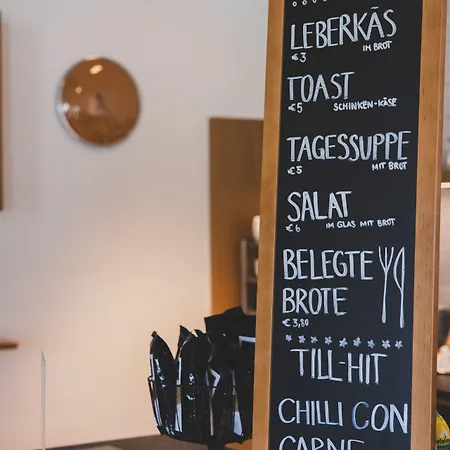 LEBERKÄS
€3 IM BROT
TOAST
€5 SCHINKEN-KÄSE
TAGESSUPPE
€5 MIT BROT
SALAT
€6 IM GLAS MIT BROT
BELEGTE
BROTE
€3,80
TILL-HIT
CHILLI CON
CARNE